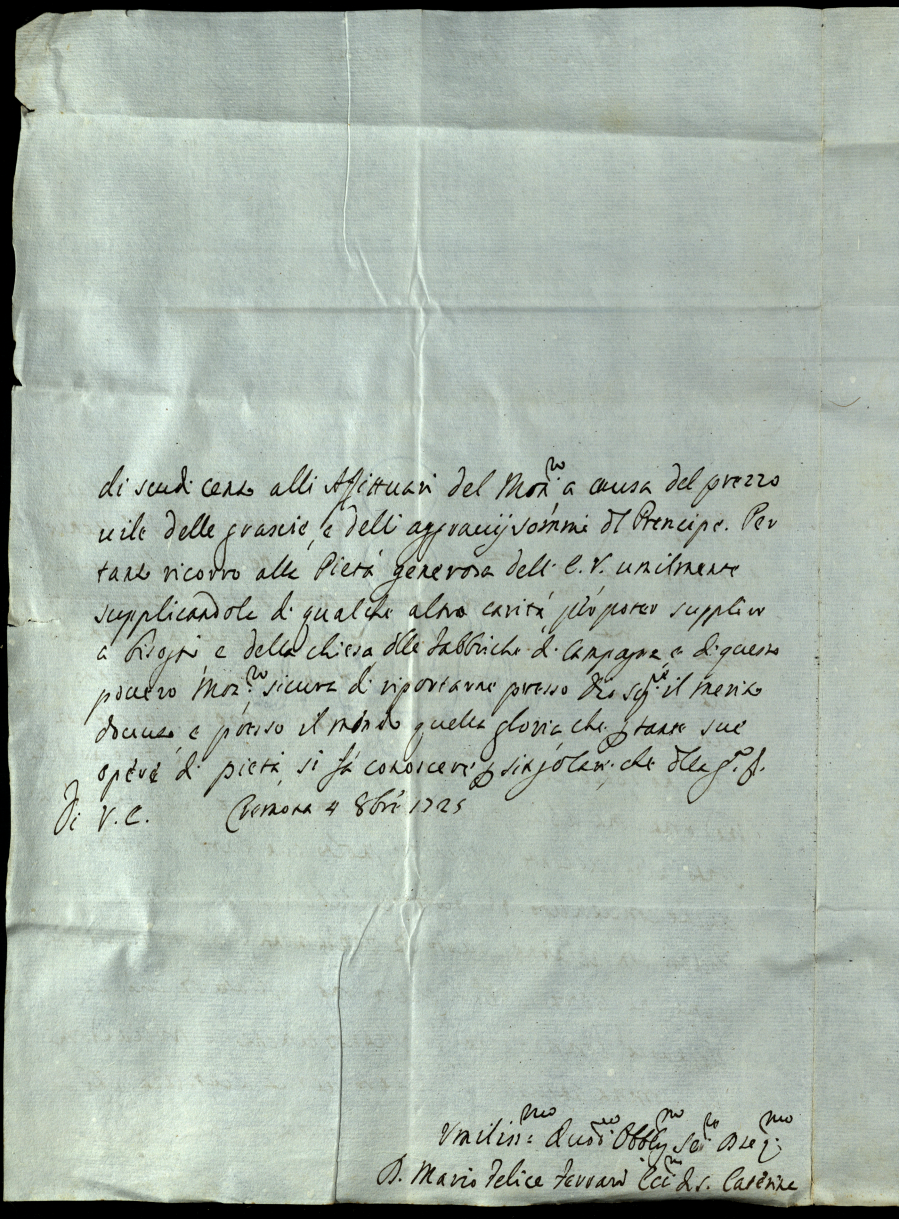 di scudi cento alli Affittuari del Mon.ro a causa del prezzo
vile delle grascie, e delli aggravij sommi dl Prencipe. Per
tanto ricorro alla Pietà generosa dell' E. V. umilmente
supplicandola di qualche altra carità p poter supplire
a bisogni e della chiesa, dlle fabbriche di campagna e di questo
povero Mon.ro sicura di riportarne presso Dio il merito
dovuto e presso il mondo quella gloria che p tante sue
opere di pietà, si fà conoscere p singolare, che dlla
Di V. E. Cremona 4 8bre 1725
Umiliss.mo Obblig.mo
D. Mario Felice Ferrari di S. Caterina